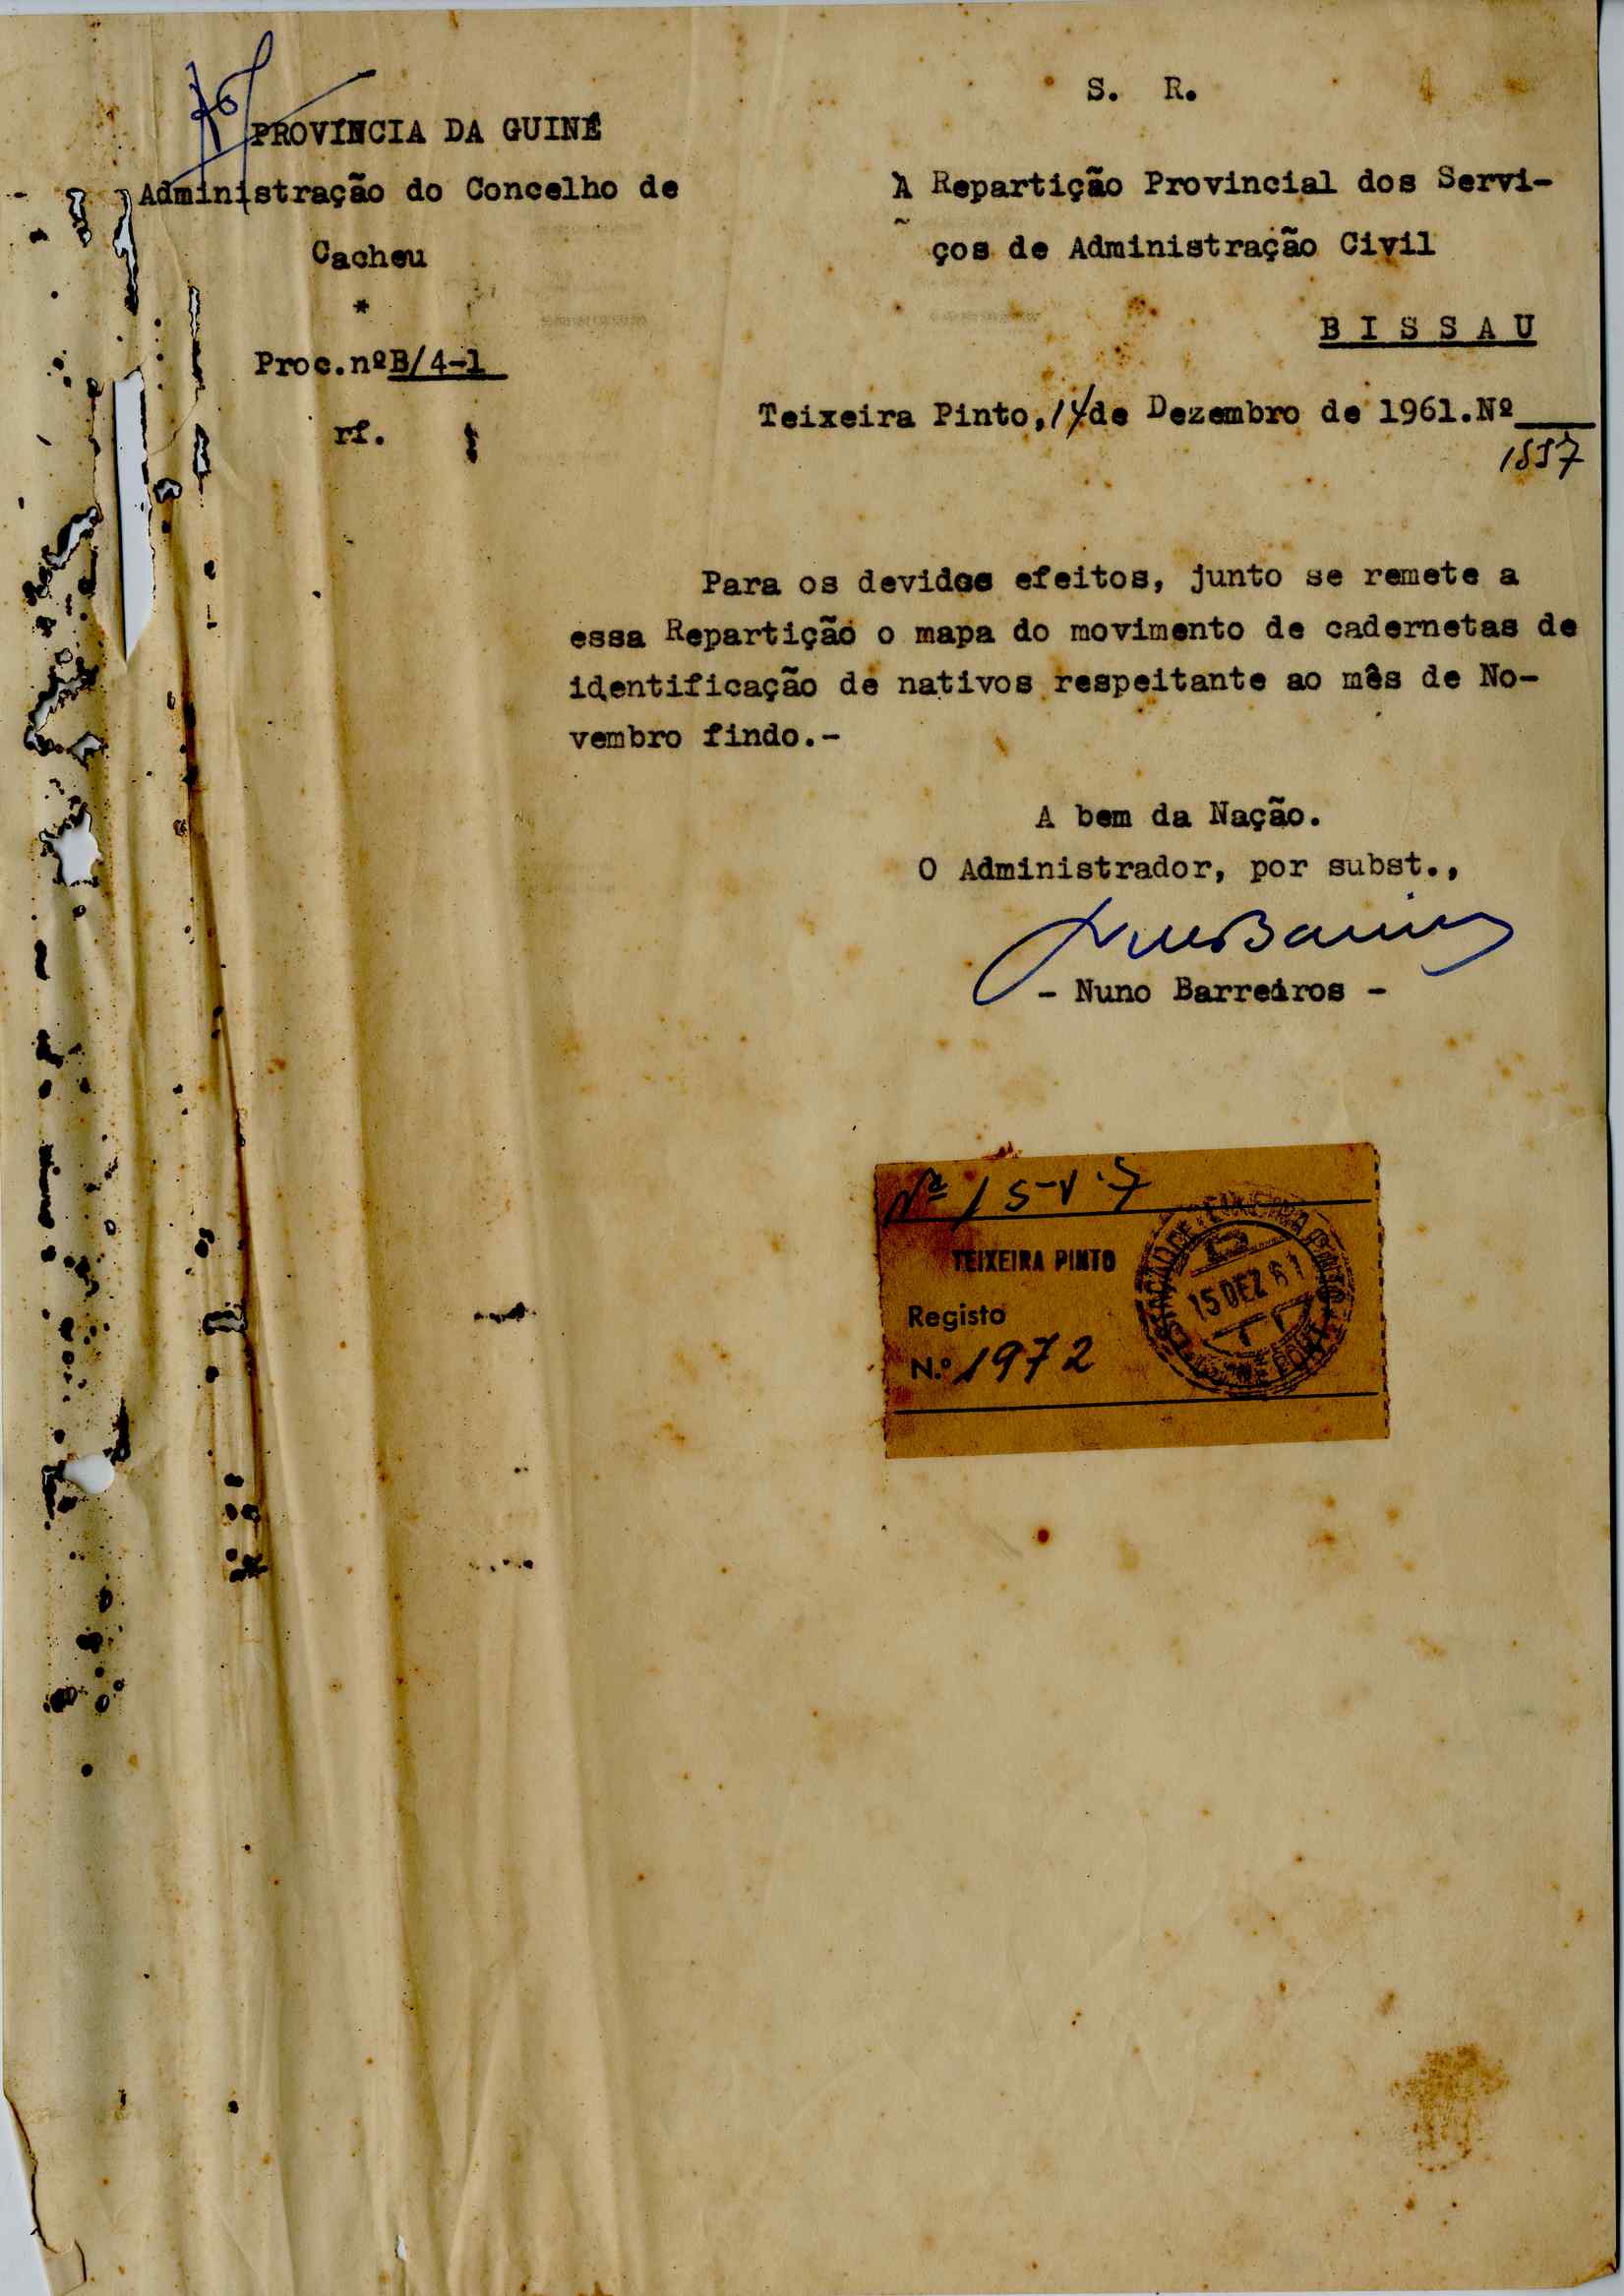 S. R.
PROVÍNCIA DA GUINÉ
Administração do Concelho de
Cacheu
*
Proc.nºB/4-1
rf.
À Repartição Provincial dos Servi-
ços de Administração Civil
B I S S A U
Teixeira Pinto,14 de Dezembro de 1961.Nº
Para os devidos efeitos, junto se remete a
essa Repartição o mapa do movimento de cadernetas de
identificação de nativos respeitante ao mês de No-
vembro findo.-
A bem da Nação.
O Administrador, por subst.,
- Nuno Barreiros -
TEIXEIRA PINTO
15 DEZ 61
Registo
N.º 1972